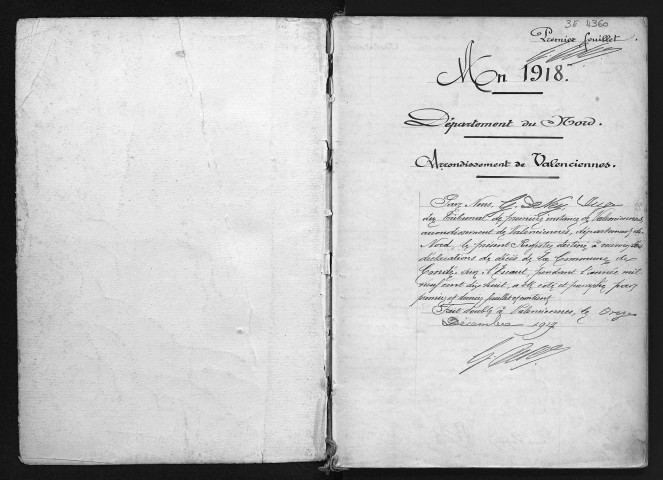 3E 4360
Premier feuillet.
An 1918.
Département du Nord.
Arrondissement de Valenciennes.
Par Nous, Juge
du Tribunal de première instance de Valenciennes,
arrondissement de Valenciennes, département du
Nord, le présent Registre destiné à recevoir les
déclarations de décès de la Commune de
Condé sur l'Escaut, pendant l'année mil
neuf cent dix huit, a été coté et paraphé par
premier et dernier feuillet contenant
Fait double à Valenciennes, le onze
Décembre 1917